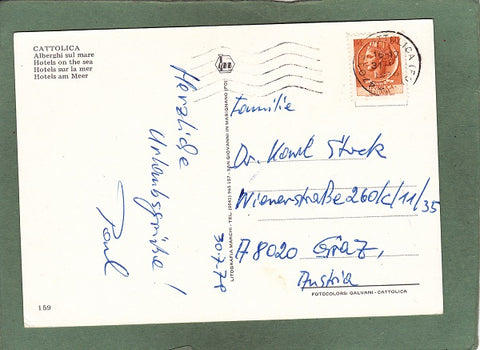 CATTOLICA
Alberghi sul mare
Hotels on the sea
Hotels sur la mer
Hotels am Meer
Herzliche
Urlaubsgrüße!
Paul
30.7.78
159
LITOGRAFIA MARCHI - TEL. (0541) 945 157 - SAN GIOVANNI IN MARIGNANO (FO)
Familie
Dr. Karl Strck
Wienerstraße 260/c/11/35
A 8020 Graz,
Austria
FOTOCOLORS: GALVANI - CATTOLICA